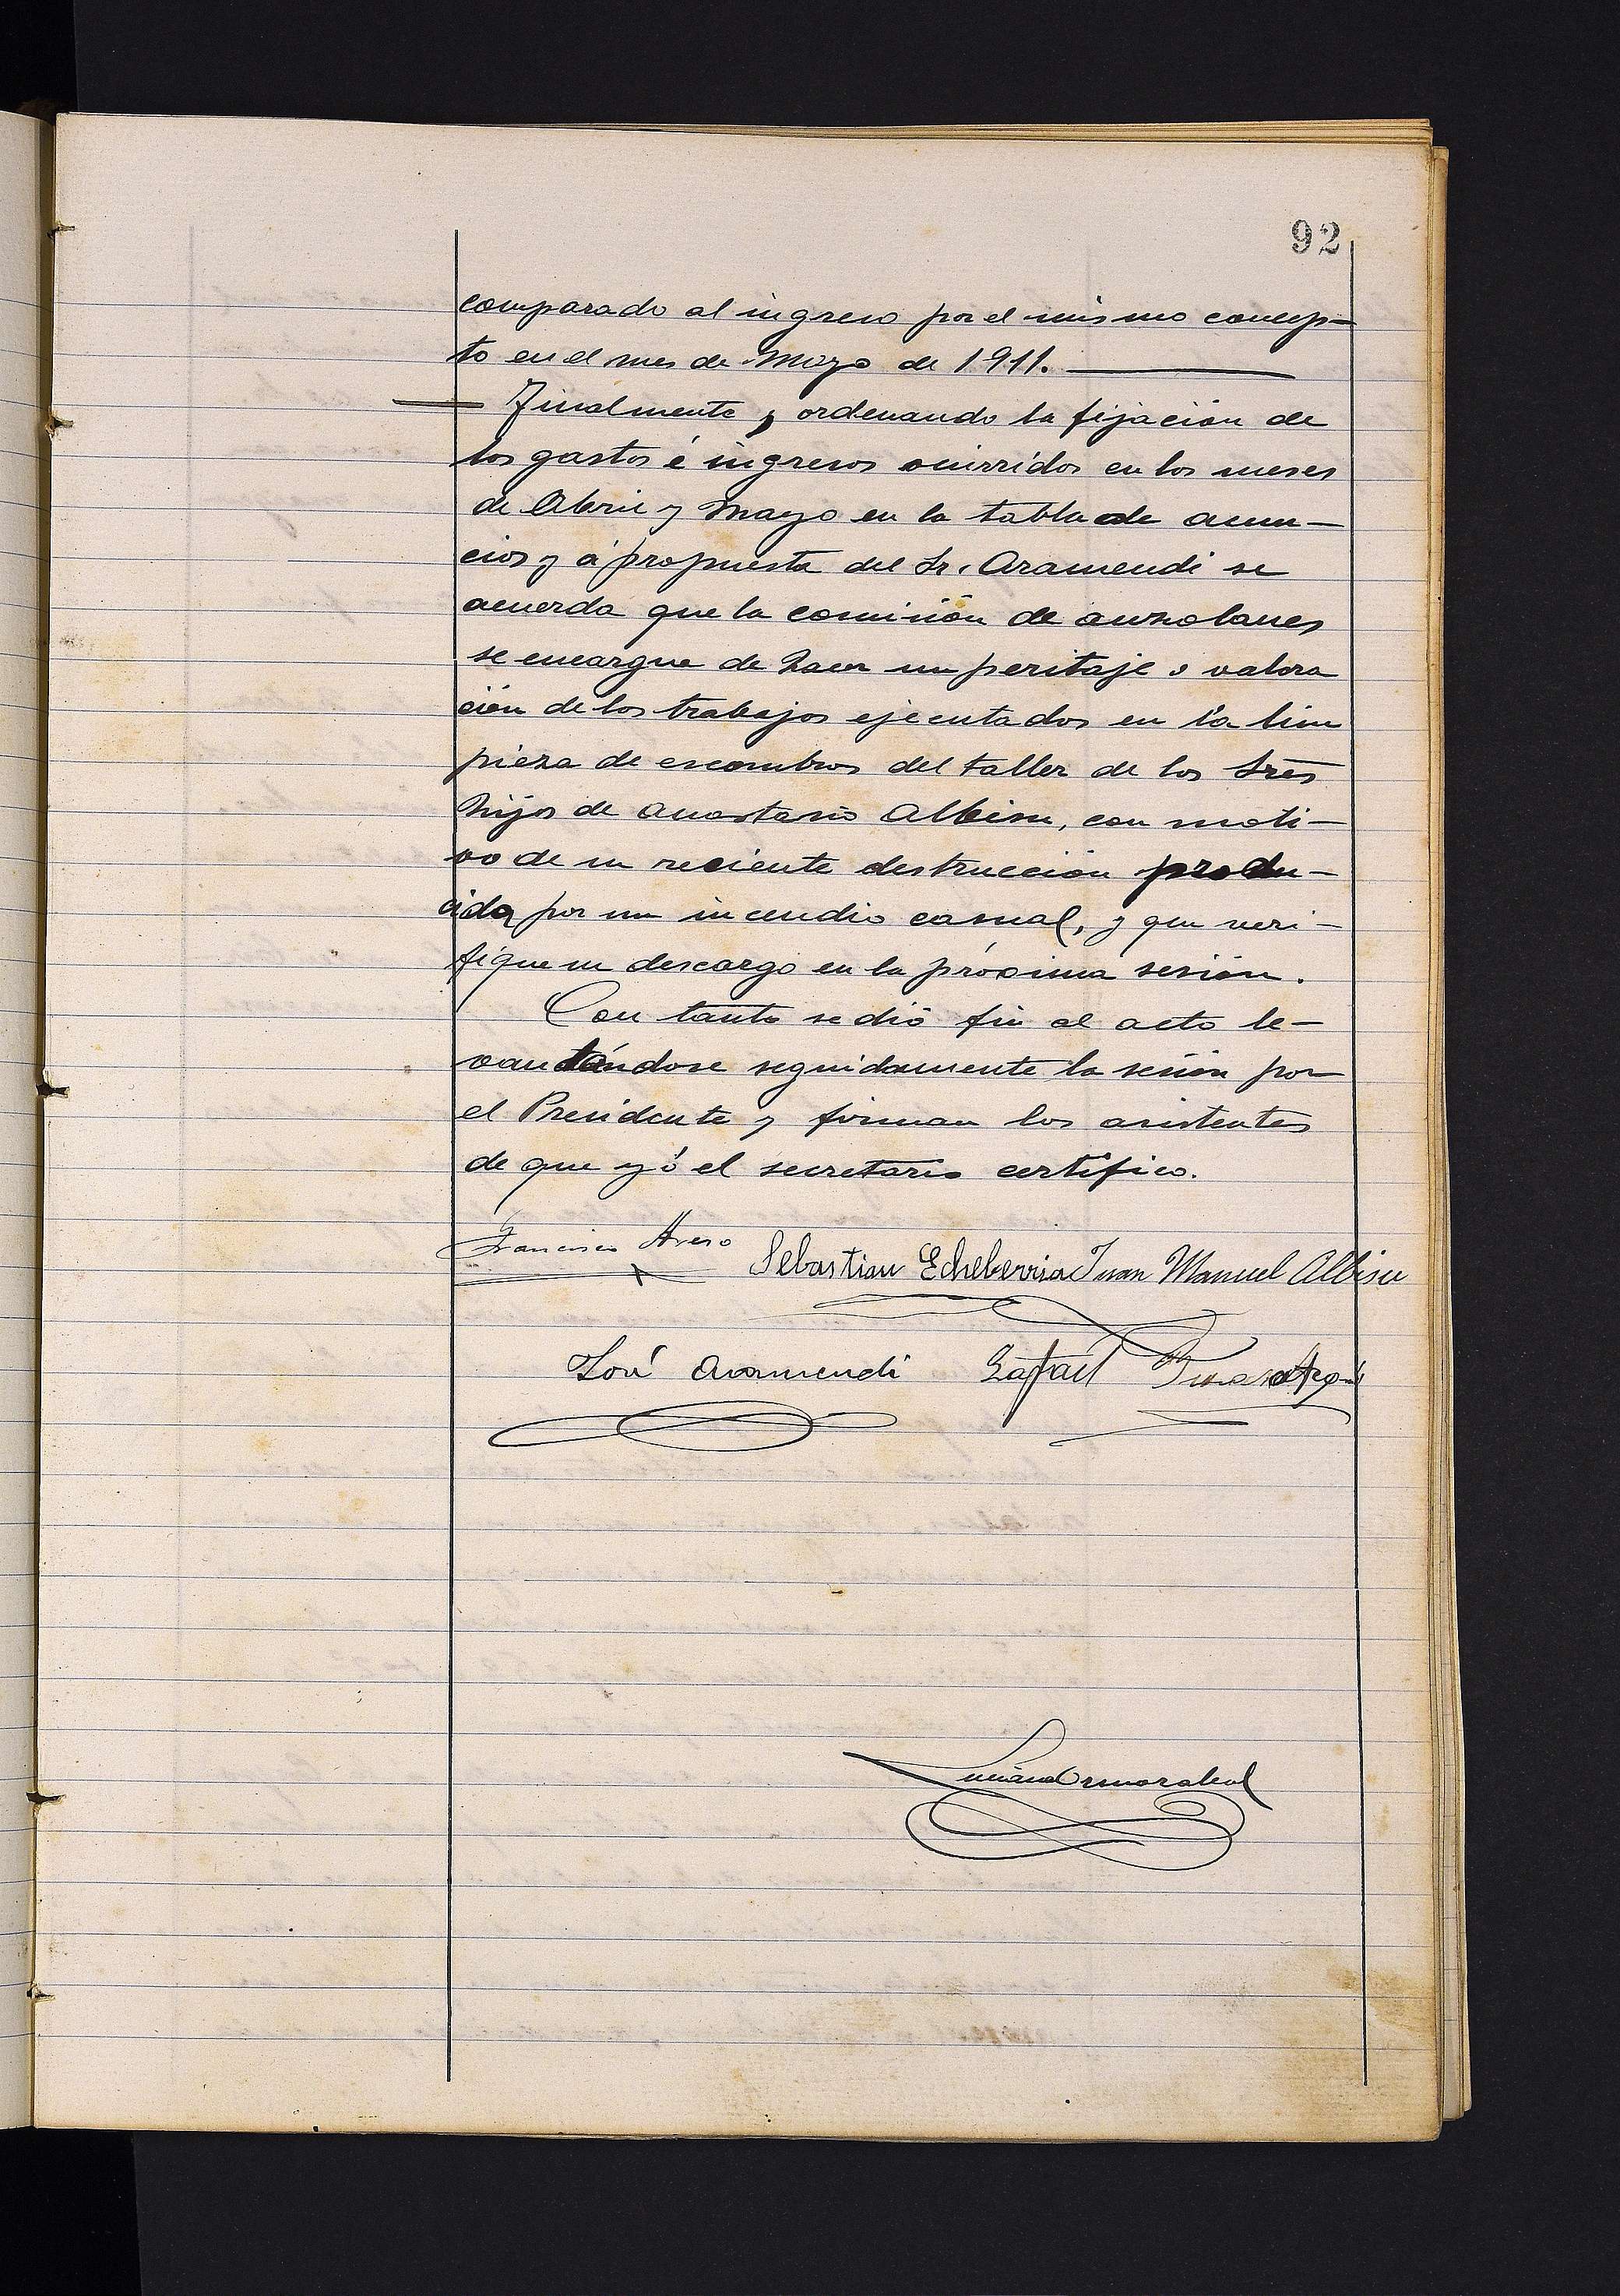 92
comparado al ingreso por el mismo concep-
to en el mes de Mayo de 1911.
Finalmente, ordenando la fijación de
los gastos é ingresos ocurridos en los meses
de Abril y Mayo en la tabla de anun-
cios y á propuesta del Sr. Aramendi se
acuerda que la comisión de auzolanes
se encargue de hacer un peritaje o valora
ción de los trabajos ejecutados en la lim
pieza de escombros del taller de los Sres
hijos de Anastasio Albisu, con moti-
vo de su reciente destrucción produ-
cida por un incendio casual, y que veri-
fique su descargo en la próxima sesión.
Con tanto se dió fin al acto le-
vantándose seguidamente la sesión por
el Presidente y firman los asistentes
de que yó el secretario certifico.
Francisco
Sebastian Echeberria Juan Manuel Albisu
José Aramendi Rafael